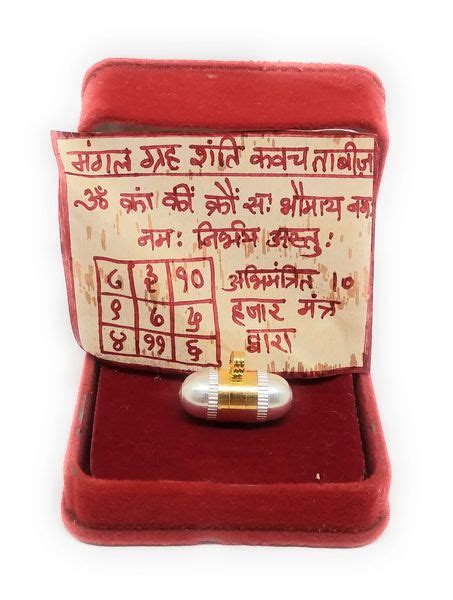 मंगल ग्रह शांति कवच ताबीज
ॐ क्रां क्रीं क्रौं सः भौमाय नमः
नमः अस्तु:
८ ३ १०
९ ७ ५
४ ११ ६
अभिमंत्रित १०
हजार मंत्र
द्वारा